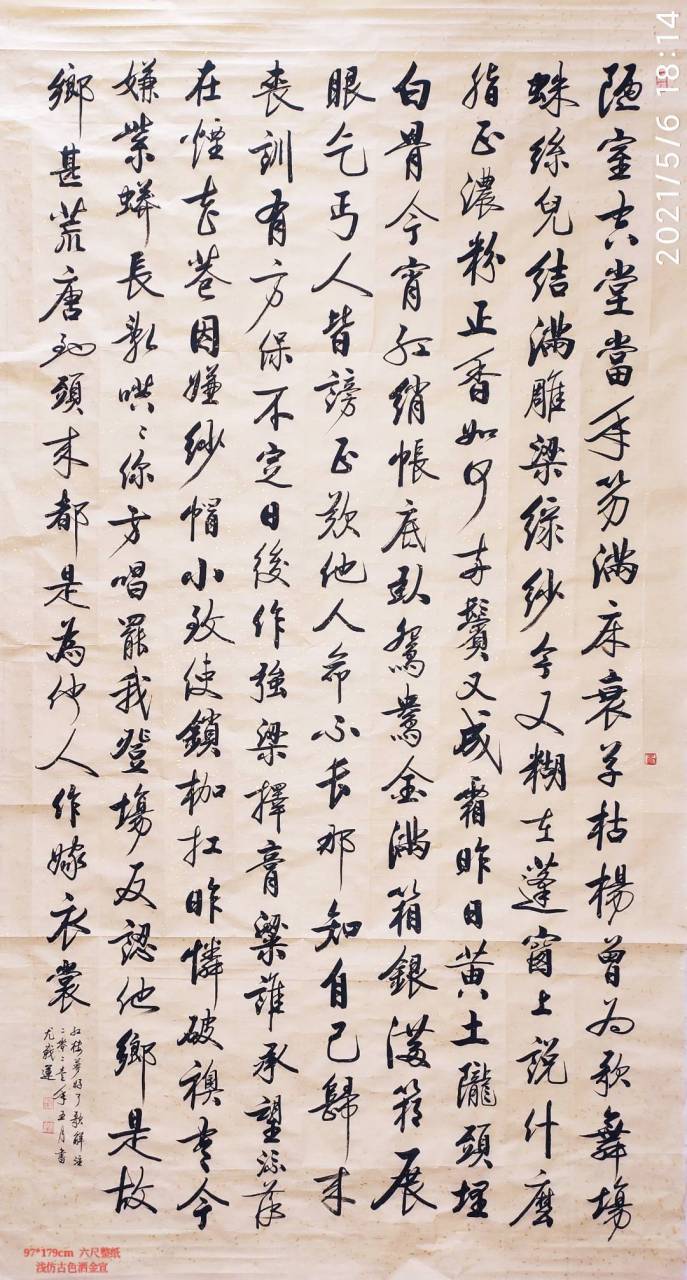 陋室空堂當年笏满床衰草枯楊曾为歌舞場
蛛絲兒結满雕梁綠紗今又糊在蓬窗上說什麽
脂正濃粉正香如何兩鬢又成霜昨日黄土隴頭埋
白骨今宵紅綃帳底臥鴛鴦金满箱銀满箱展
眼乞丐人皆謗正歎他人命不長那知自己歸來
喪訓有方保不定日後作強梁擇膏粱誰承望流落
在煙花巷因嫌紗帽小致使鎖枷扛昨憐破襖寒今
嫌紫蟒長亂哄〻你方唱罷我登場反認他鄉是故
鄉甚荒唐到頭來都是為他人作嫁衣裳
紅樓夢好了歌解注
二零二壹年五月書
尤戰運
2021/5/6 18:14
97*179cm 六尺整纸
浅仿古色洒金宣